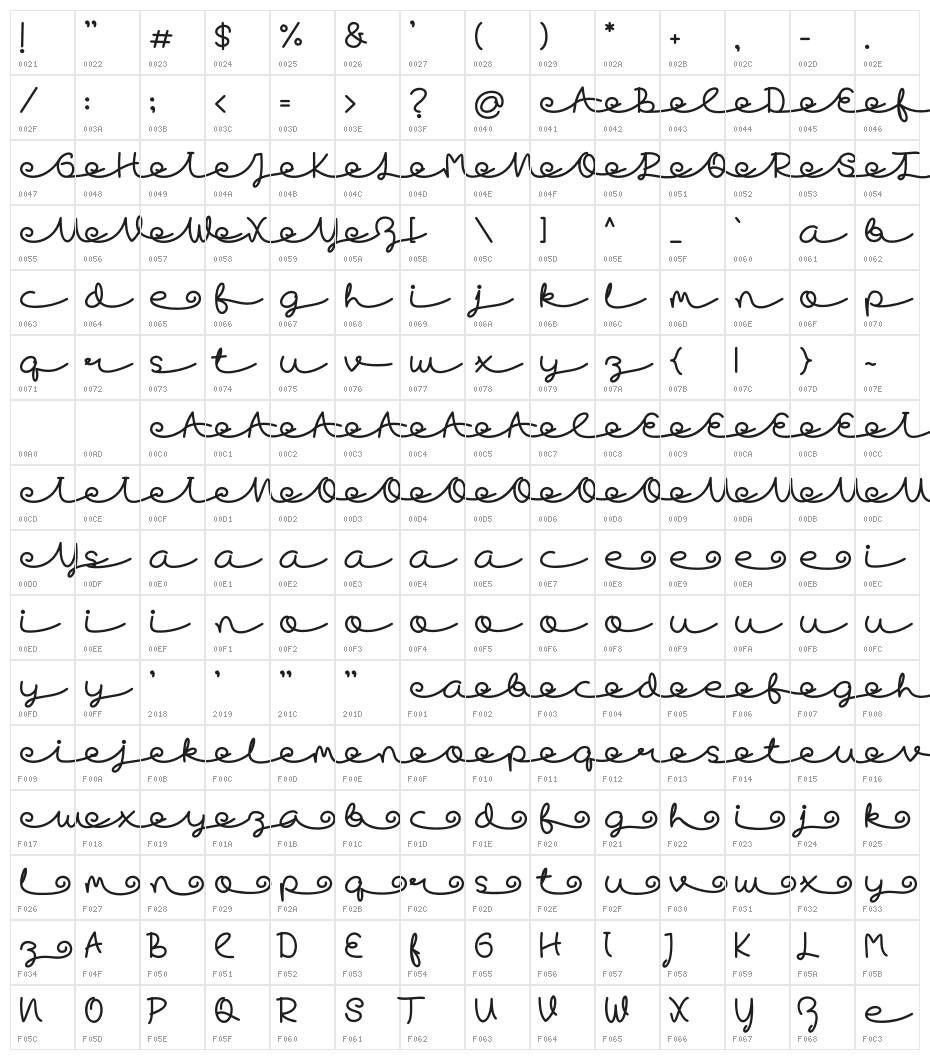 ! " # $ % & ' ( ) * + , - .
0021 0022 0023 0024 0025 0026 0027 0028 0029 002A 002B 002C 002D 002E
/ : ; < = > ? @ A B C D E F
002F 003A 003B 003C 003D 003E 003F 0040 0041 0042 0043 0044 0045 0046
G H I J K L M N O P Q R S T
0047 0048 0049 004A 004B 004C 004D 004E 004F 0050 0051 0052 0053 0054
U V W X Y Z [ \ ] ^ _ ` a b
0055 0056 0057 0058 0059 005A 005B 005C 005D 005E 005F 0060 0061 0062
c d e f g h i j k l m n o p
0063 0064 0065 0066 0067 0068 0069 006A 006B 006C 006D 006E 006F 0070
q r s t u v w x y z { | } ~
0071 0072 0073 0074 0075 0076 0077 0078 0079 007A 007B 007C 007D 007E
A A A A A A C E E E E I
00A0 00AD 00C0 00C1 00C2 00C3 00C4 00C5 00C7 00C8 00C9 00CA 00CB 00CC
I I I N O O O O O O U U U U
00CD 00CE 00CF 00D1 00D2 00D3 00D4 00D5 00D6 00D8 00D9 00DA 00DB 00DC
Y s a a a a a a c e e e e i
00DD 00DF 00E0 00E1 00E2 00E3 00E4 00E5 00E7 00E8 00E9 00EA 00EB 00EC
i i i n o o o o o o u u u u
00ED 00EE 00EF 00F1 00F2 00F3 00F4 00F5 00F6 00F8 00F9 00FA 00FB 00FC
y y ' ' " " a b c d e f g h
00FD 00FF 2018 2019 201C 201D F001 F002 F003 F004 F005 F006 F007 F008
i j k l m n o p q r s t u v
F009 F00A F00B F00C F00D F00E F00F F010 F011 F012 F013 F014 F015 F016
w x y z a b c d f g h i j k
F017 F018 F019 F01A F01B F01C F01D F01E F020 F021 F022 F023 F024 F025
l m n o p q r s t u v w x y
F026 F027 F028 F029 F02A F02B F02C F02D F02E F02F F030 F031 F032 F033
z A B C D E F G H I J K L M
F034 F04F F050 F051 F052 F053 F054 F055 F056 F057 F058 F059 F05A F05B
N O P Q R S T U V W X Y Z e
F05C F05D F05E F05F F060 F061 F062 F063 F064 F065 F066 F067 F068 F0C3